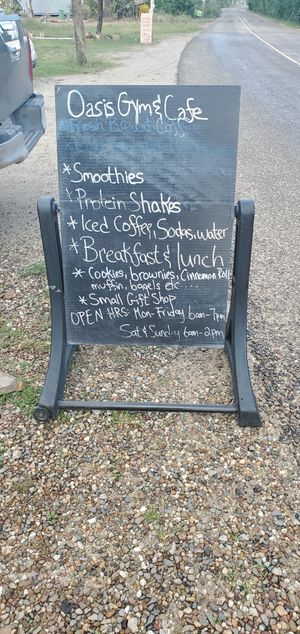 Oasis Gym & Cafe
Fresh Brewed Coffee
* Smoothies
* Protein Shakes
* Iced Coffee, Sodas, water
* Breakfast & lunch
* Cookies, brownies, Cinnamon Roll
muffin, bagels etc....
* Small Gift Shop
OPEN HRS: Mon-Friday 6am-7pm
Sat & Sunday 6am-2pm